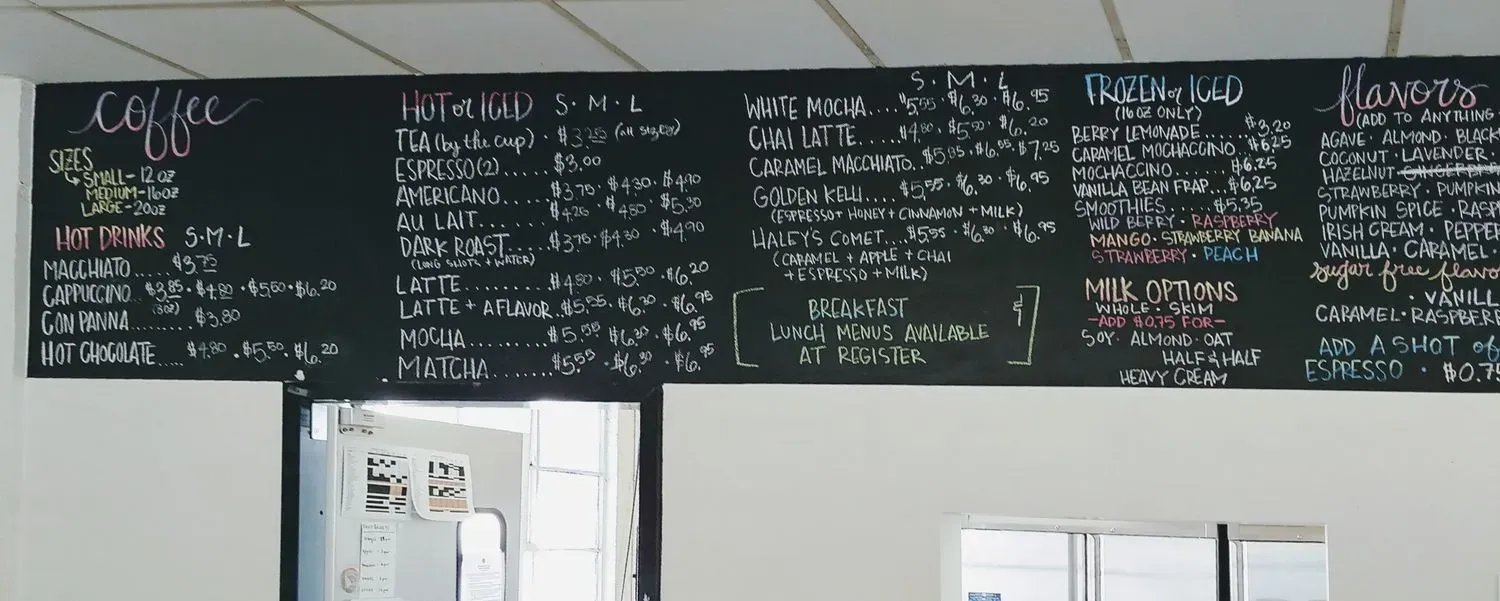 coffee
SIZES
SMALL - 12 OZ
MEDIUM - 16OZ
LARGE - 20OZ
HOT DRINKS S · M · L
MACCHIATO..... $3.75
CAPPUCCINO... $3.85 · $4.80 · $5.50 · $6.20
(8OZ)
CON PANNA......... $3.80
HOT CHOCOLATE.... $4.80 · $5.50 · $6.20
HOT or ICED S · M · L
TEA (by the cup) · $3.25 (all sizes)
ESPRESSO (2)...... $3.00
AMERICANO....... $3.75 · $4.30 · $4.90
AU LAIT........... $4.20 · $4.80 · $5.30
DARK ROAST..... $3.75 · $4.30 · $4.90
(LONG SHOTS + WATER)
LATTE............ $4.80 · $5.50 · $6.20
LATTE + A FLAVOR.. $5.55 · $6.30 · $6.95
MOCHA........... $5.55 $6.30 · $6.95
MATCHA......... $5.55 · $6.30 · $6.95
S · M · L
WHITE MOCHA.... $5.55 · $6.30 · $6.95
CHAI LATTE...... $4.80 · $5.50 · $6.20
CARAMEL MACCHIATO.. $5.85 · $6.55 · $7.25
GOLDEN KELLI..... $5.55 · $6.30 · $6.95
(ESPRESSO + HONEY + CINNAMON + MILK)
HALEY'S COMET.... $5.55 · $6.30 · $6.95
(CARAMEL + APPLE + CHAI
+ ESPRESSO + MILK)
BREAKFAST &
LUNCH MENUS AVAILABLE
AT REGISTER
FROZEN or ICED
(16 OZ ONLY)
BERRY LEMONADE...... $3.20
CARAMEL MOCHACCINO.. $6.25
MOCHACCINO........ $6.25
VANILLA BEAN FRAP... $6.25
SMOOTHIES....... $5.35
WILD BERRY · RASPBERRY
MANGO · STRAWBERRY BANANA
STRAWBERRY · PEACH
MILK OPTIONS
WHOLE · SKIM
-ADD $0.75 FOR-
SOY · ALMOND · OAT
HALF & HALF
HEAVY CREAM
flavors
(ADD TO ANYTHING
AGAVE · ALMOND · BLACK
COCONUT · LAVENDER ·
HAZELNUT ·
STRAWBERRY · PUMPKIN
PUMPKIN SPICE · RASP
IRISH CREAM · PEPPER
VANILLA · CARAMEL ·
sugar free flavo
· VANILL
CARAMEL · RASPBERR
ADD A SHOT of
ESPRESSO · $0.75